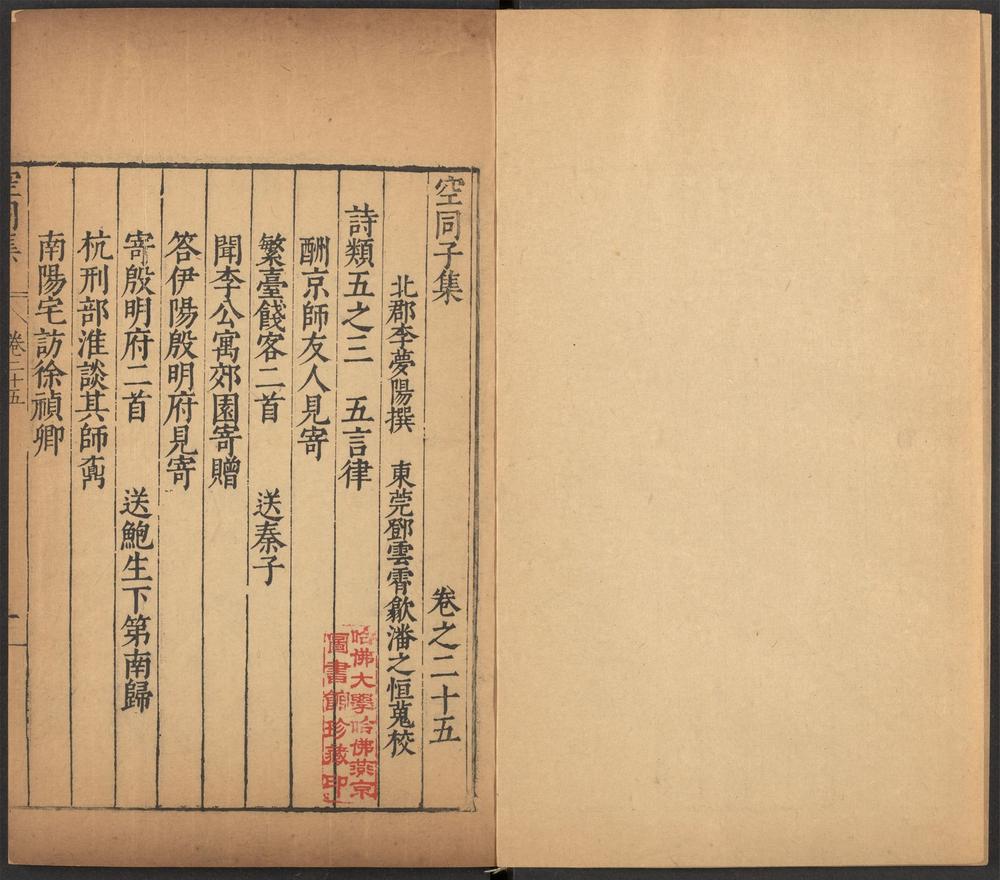 空同子集 卷之二十五
北郡李夢陽撰 東莞鄧雲霄歙潘之恒蒐校
詩類五之三 五言律
酬京師友人見寄
繁臺餞客二首 送秦子
聞李公寓郊園寄贈
答伊陽殷明府見寄
寄殷明府二首 送鮑生下第南歸
杭刑部淮談其師
南陽宅訪徐禎卿
空同集 卷二十五 一
哈佛大學哈佛燕京
圖書館珍藏印